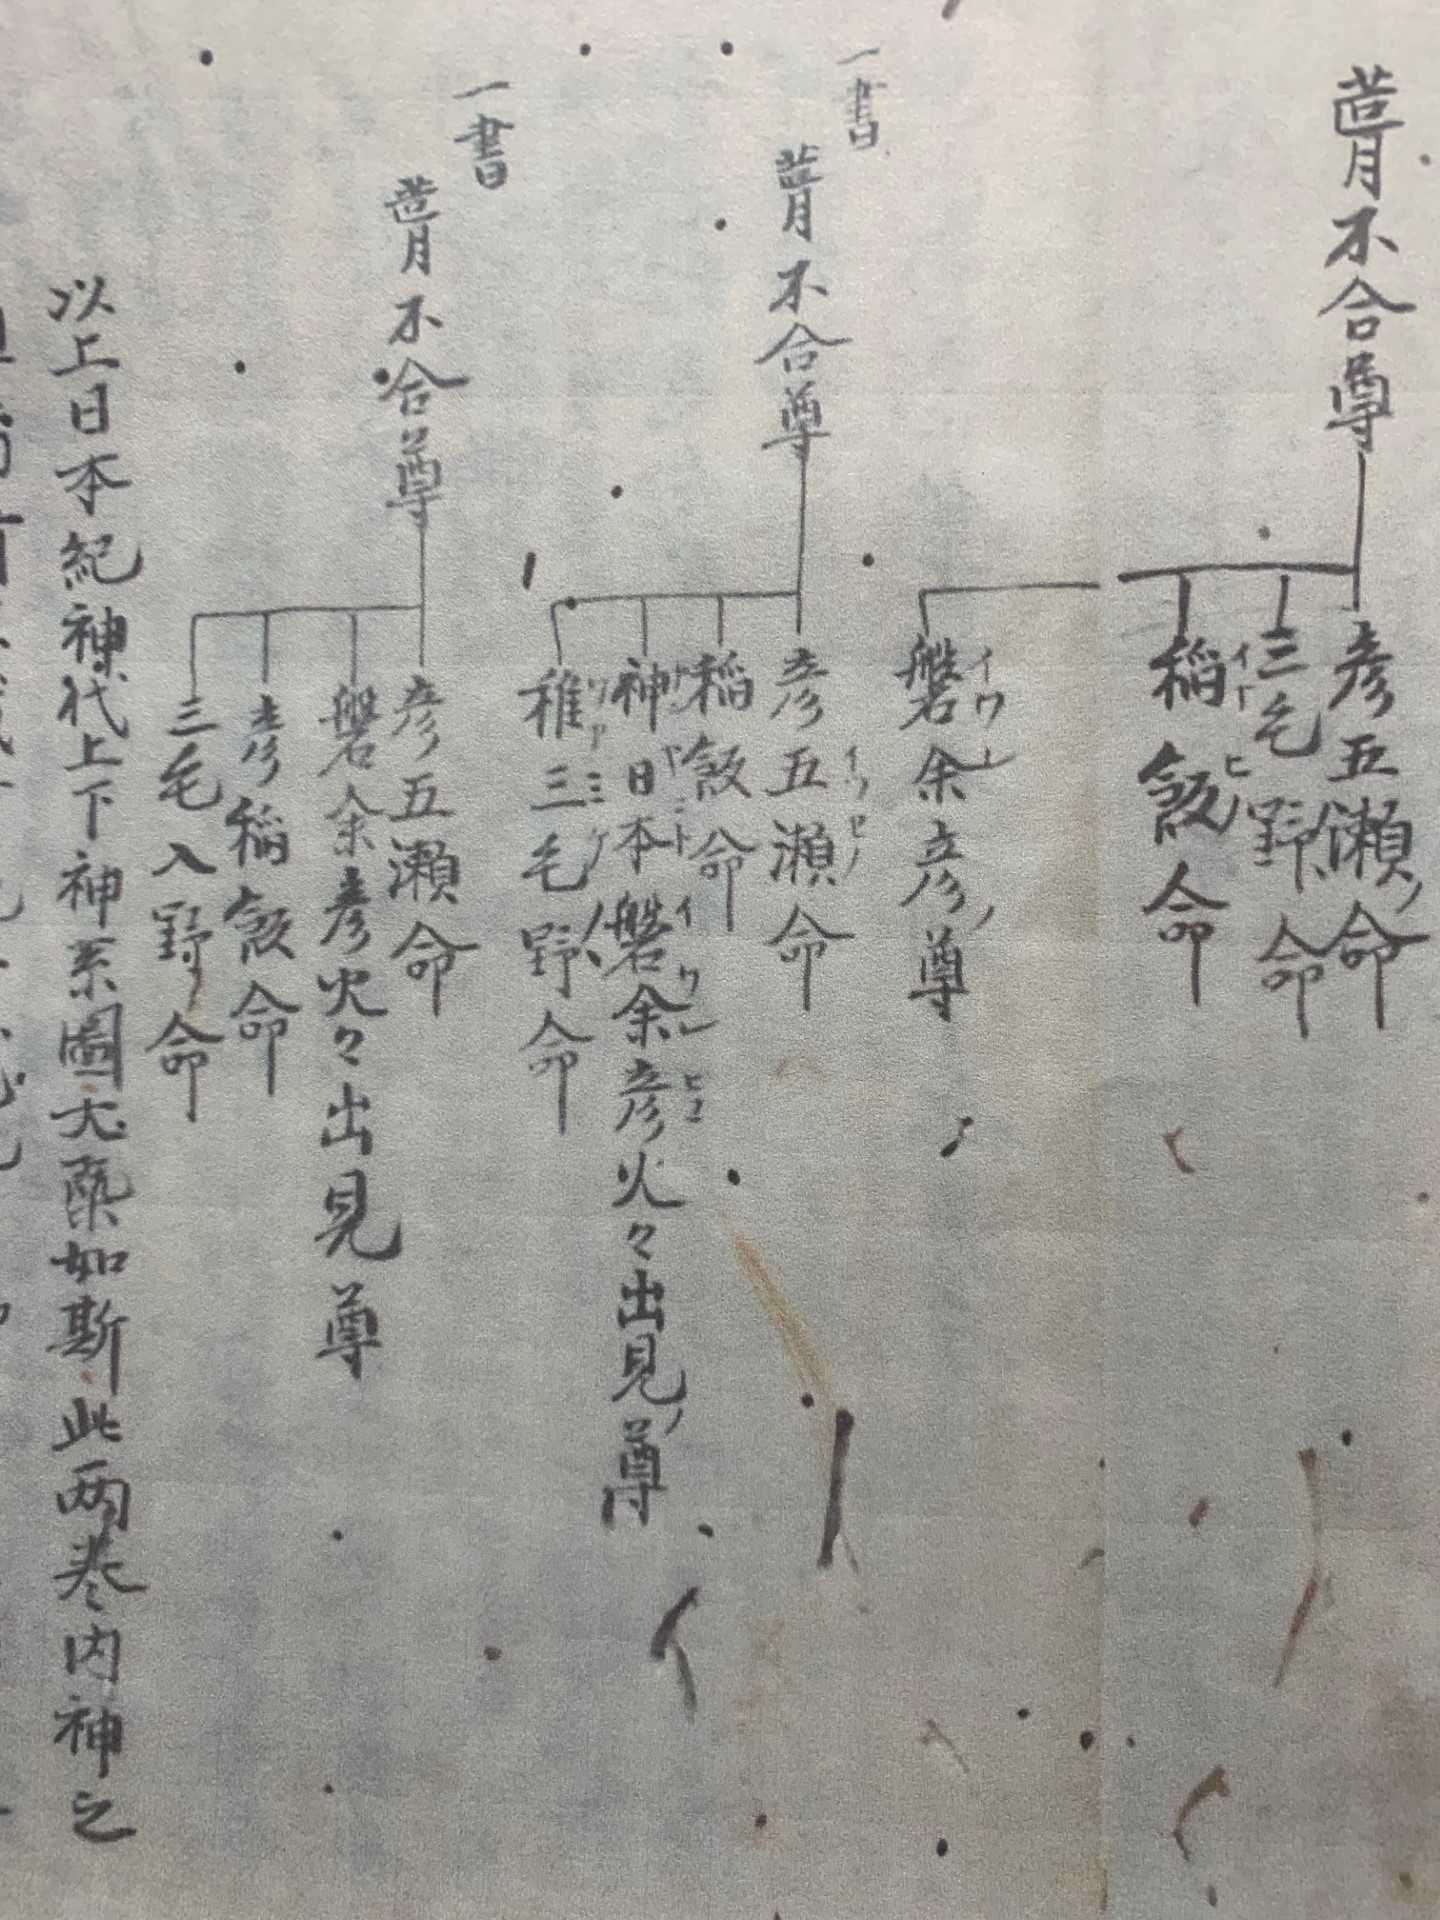 葺不合尊
彦五瀬ノ命
三毛野命
稲飯命
イーヒ
磐余彦ノ尊
イワレ
一書
葺不合尊
彦五瀬命
イツセノ
稲飯命
神日本磐余彦火々出見ノ尊
稚三毛野命
ワカミケノ
一書
葺不合尊
彦五瀬命
磐余彦火々出見尊
彦稲飯命
三毛入野命
以上日本紀神代上下神系圖大槩如斯此两巻内神之